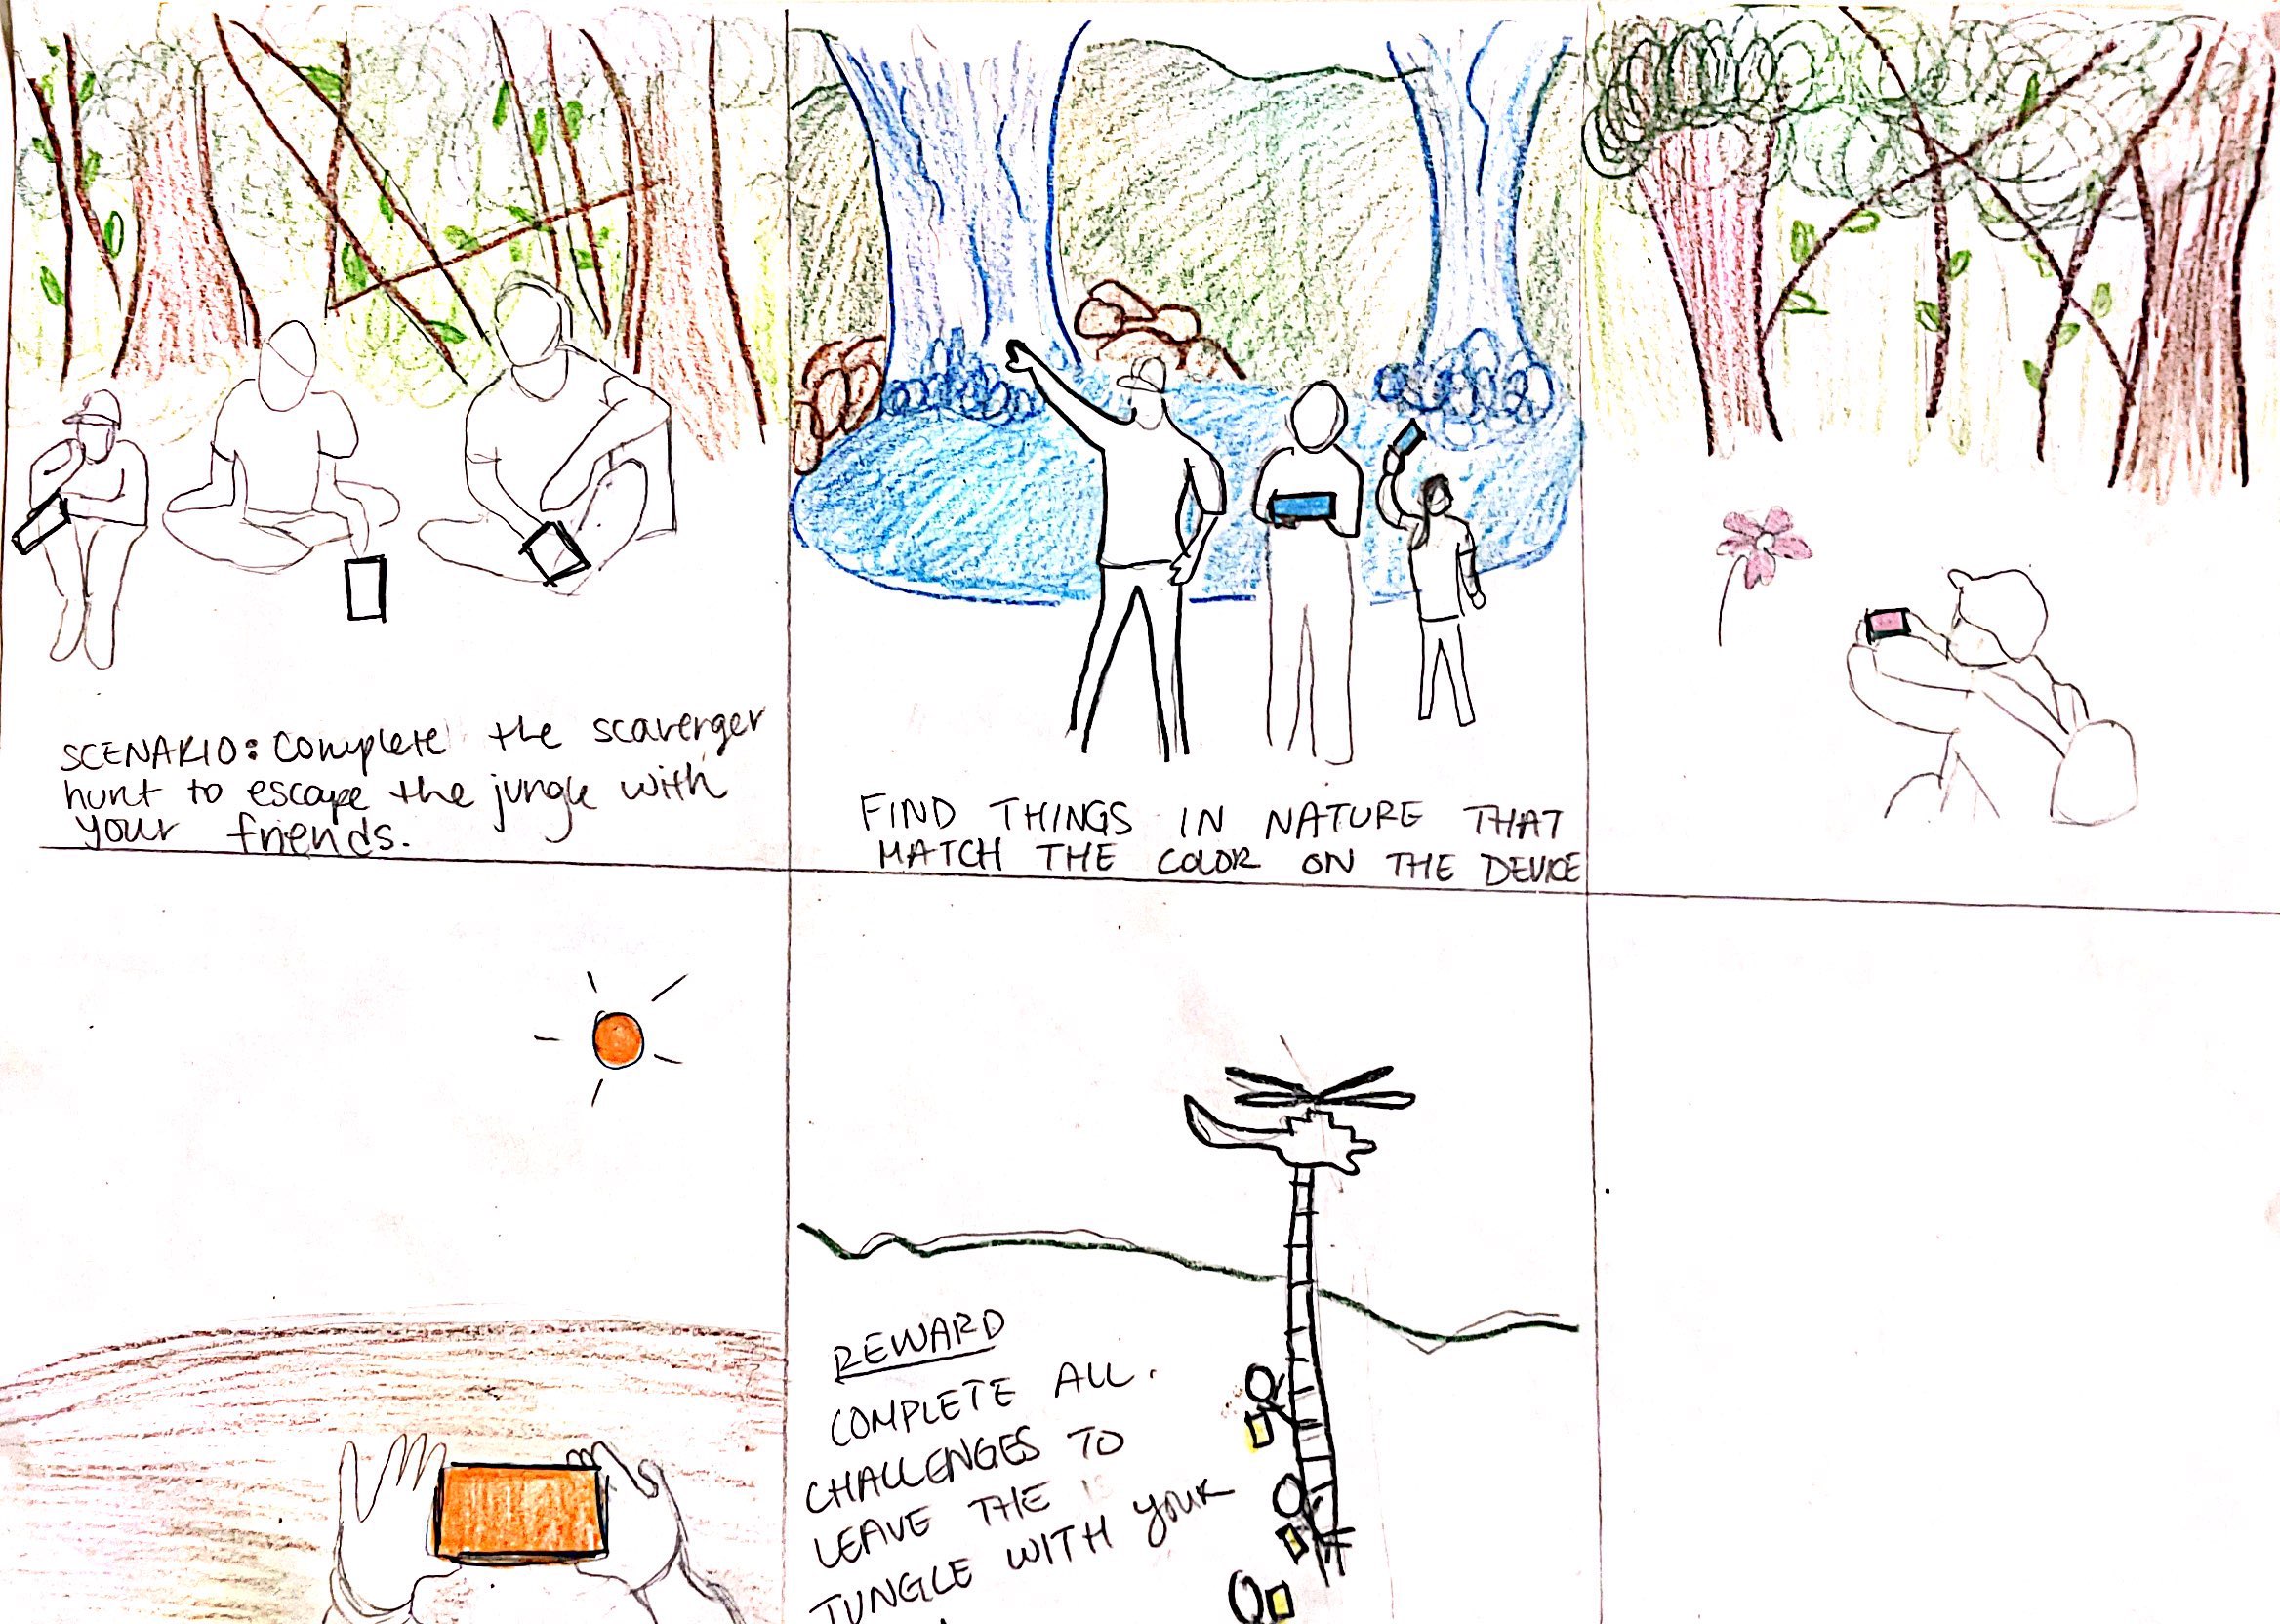 SCENARIO: Complete the scavenger
hunt to escape the jungle with
your friends.
FIND THINGS IN NATURE THAT
MATCH THE COLOR ON THE DEVICE
REWARD
COMPLETE ALL.
CHALLENGES TO
LEAVE THE
JUNGLE WITH YOUR